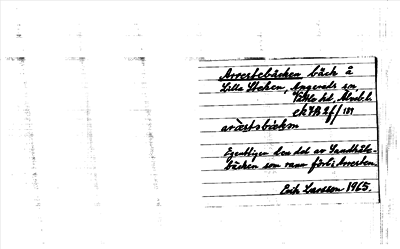 Arrestebäcken bäck å
Lilla Staken, Angereds sn,
Vättle hd, Älvsb. l.
ek 7B 2f // 181
aràstsbækən
Egentligen ben del av Sandhåls-
bäcken som rann förbi Arresten.
Erik Larsson 1965.